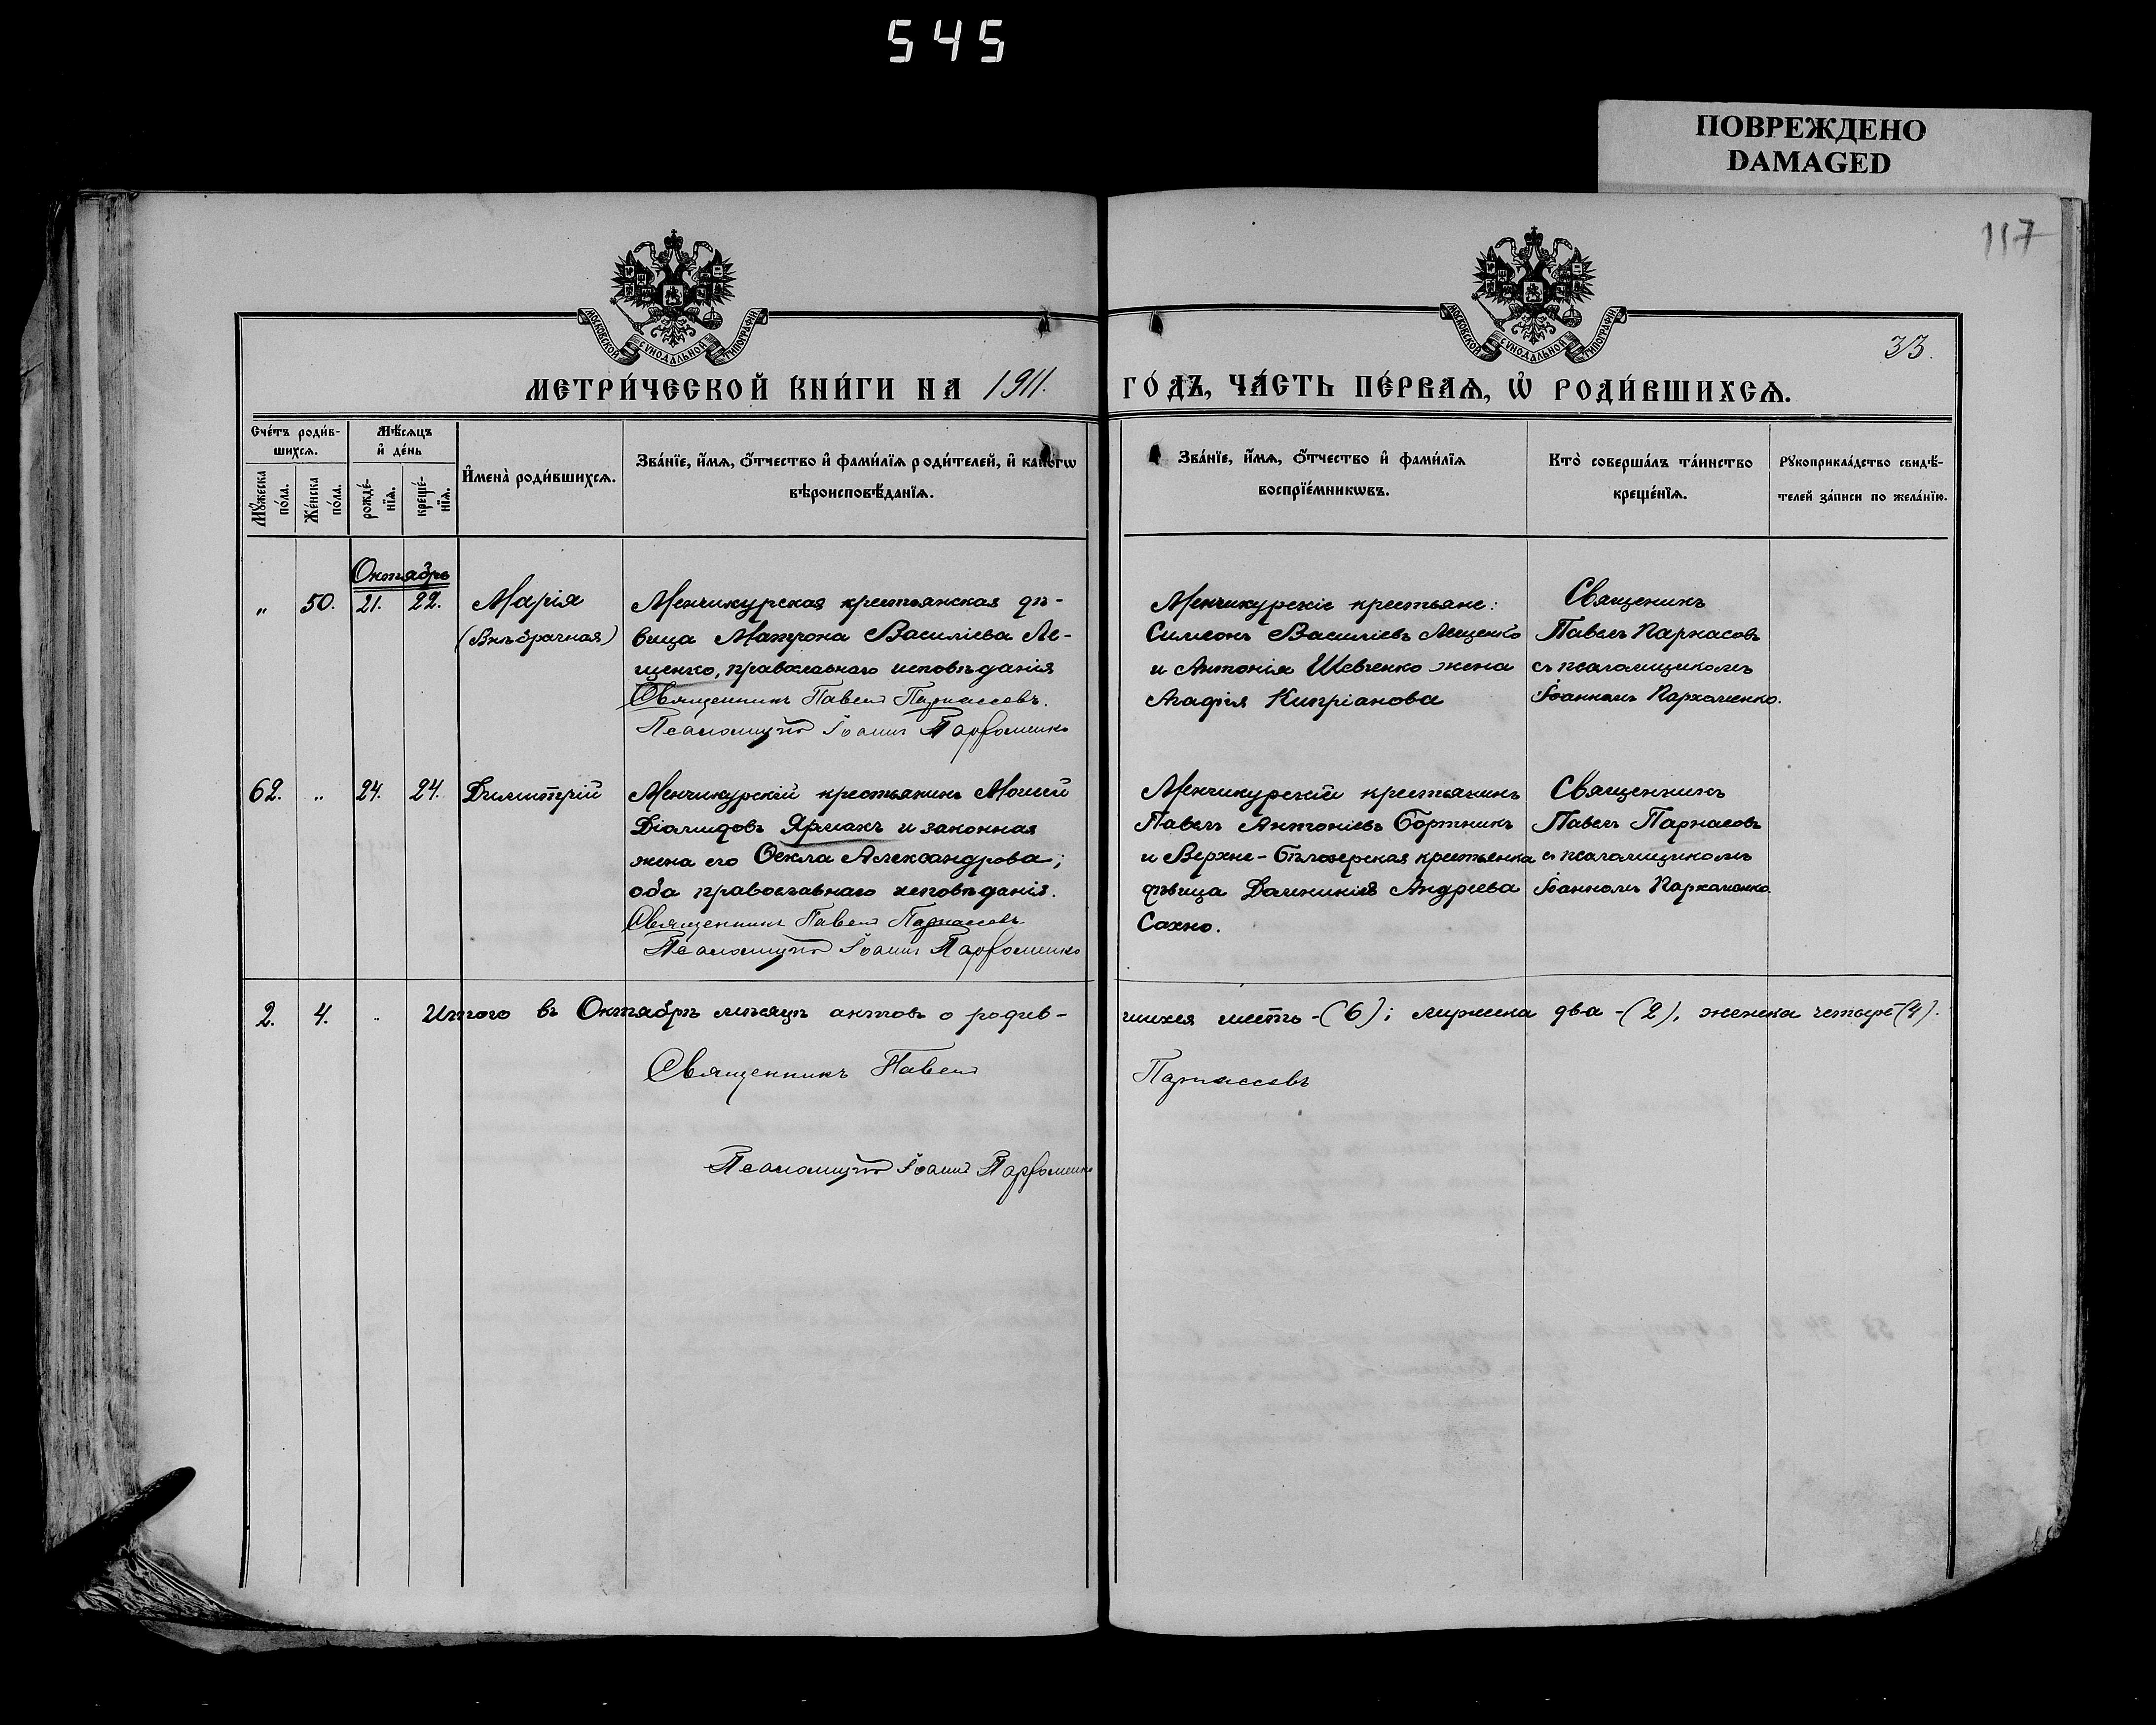 545
ПОВРЕЖДЕНО
DAMAGED
117
МОСКОВСКОЙ СѴНОДАЛЬНОЙ ТИПОГРАФІИ
МОСКОВСКОЙ СѴНОДАЛЬНОЙ ТИПОГРАФІИ
33.
МЕТРИ́ЧЕСКОЙ КНИ́ГИ НА 1911. ГО́ДЪ, ЧА́СТЬ ПЕ́РВАѦ, Ѡ҆ РОДИ́ВШИХСѦ.
Сче́тъ роди́в-
шихсѧ.
Мꙋ́жеска по́ла.
Же́нска по́ла.
Мѣ́сѧцъ
и҆ де́нь
рожде́-
нїѧ.
креще́-
нїѧ.
И҆мена̀ роди́вшихсѧ.
Зва́нїе, и҆́мѧ, ѻ҆́тчество и҆ фами́лїѧ роди́телей, и҆ како́гѡ
вѣроисповѣ́данїѧ.
Зва́нїе, и҆́мѧ, ѻ҆́тчество и҆ фами́лїѧ
воспрїе́мникѡвъ.
Кто̀ соверша́лъ та́инство
креще́нїѧ.
Рꙋкоприкла́дство свидѣ́-
телей за́писи по жела́нїю.
Октябрь
„ 50. 21. 22. Марія
(Внѣбрачная)
Менчикурская крестьянская дѣ-
вица Матрона Василіева Ле-
щенко, православнаго исповѣданія
Священникъ Павелъ Парнассовъ.
Псаломщикъ Іоаннъ Парфоменко
Менчикурскіе крестьяне:
Симеонъ Василіевъ Лещенко
и Антонія Шевченко жена
Агафія Кипріанова
Священикъ
Павелъ Парнасовъ
съ псаломщикомъ
Іоанномъ Пархоменко.
62. „ 24. 24. Димитрій
Менчикурскій крестьянинъ Моисей
Діамидовъ Ярмакъ и законная
жена его Ѳекла Александрова;
оба православнаго исповѣданія.
Священникъ Павелъ Парнассовъ
Псаломщикъ Іоаннъ Парфоменко
Менчикурскій крестьянинъ
Павелъ Антоніевъ Бортникъ
и Верхне-Бѣлозерская крестьянка
дѣвица Домникія Андреева
Сахно.
Священникъ
Павелъ Парнасовъ
съ псаломщикомъ
Іоанномъ Пархоменко.
2. 4. Итого въ Октябрѣ мѣсяцѣ актовъ о родив-
шихся шесть-(6); мужеска два-(2), женска четыре-(4).
Священникъ Павелъ Парнассовъ
Псаломщикъ Іоаннъ Парфоменко